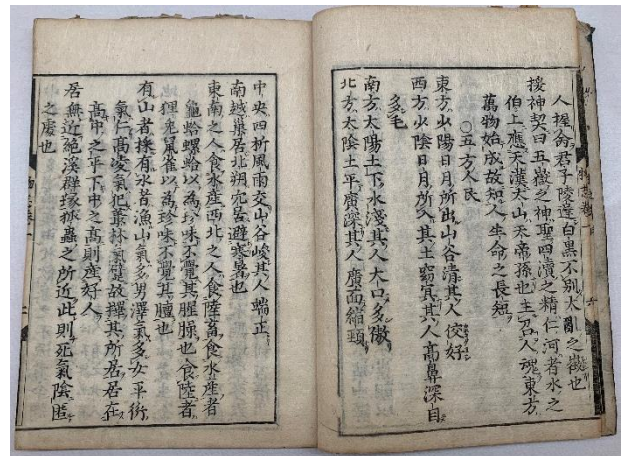 人握命君子陵遲白黒不別大亂之徴也
援神契曰五嶽之神聖四瀆之精仁河者水之
伯上應天漢太山天帝孫也主召人魂東方
萬物始成故知人生命之長短
○五方人民
東方少陽日月所出山谷清其人佼好
西方少陰日月所入其土窈冥其人高鼻深目
多毛
南方太陽土下水淺其人大口多傲
北方太陰土平廣深其人廣面縮頸
中央四析風雨交山谷峻其人端正
南越巢居北朔穴居避寒暑也
東南之人食水産西北之人食陸畜食水産者
龜蛤螺蛤以為珍味不覺其腥臊也食陸者
狸兎鼠雀以為珍味不覺其膻也
有山者採有水者漁山氣多男澤氣多女平衍
氣仁高凌氣犯叢林氣躄故擇其所居居在
高中之平下中之高則産好人
居無近絶溪群冢狐蟲之所近此則死氣陰匿
之處也